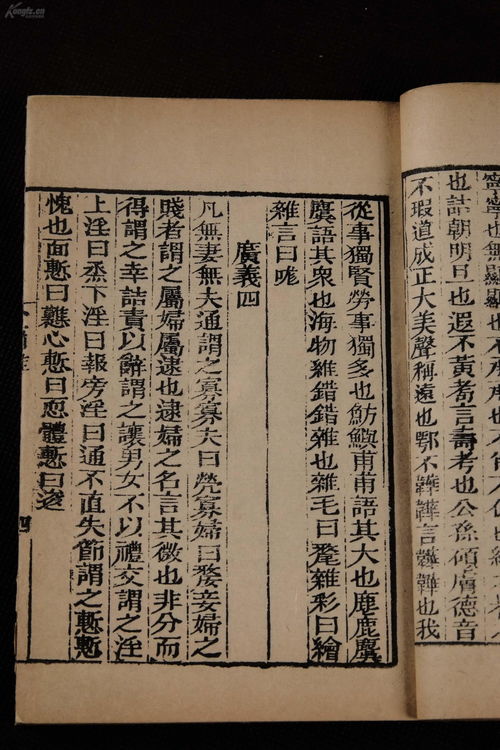 Kongfz.cn
寧寧也無顯顯也不承承也
也詰朝明旦也遐不黃耇言壽考也公孫碩膚德音
不瑕道成正大美聲稱遠也鄂不韡韡言韡韡也我
從事獨賢勞事獨多也魴鱮甫甫語其大也麀鹿麌
麌語其衆也海物維錯錯雜也雜毛曰氂雜彩曰繪
雜言曰哤
廣義四
凡無妻無夫通謂之寡寡夫曰煢寡婦曰嫠妾婦之
賤者謂之屬婦屬逮也逮婦之名言其微也非分而
得謂之幸詰責以辭謂之讓男女不以禮交謂之淫
上淫曰烝下淫曰報旁淫曰通不直失節謂之慙慙
愧也面慙曰戁心慙曰恧體慙曰逡
四